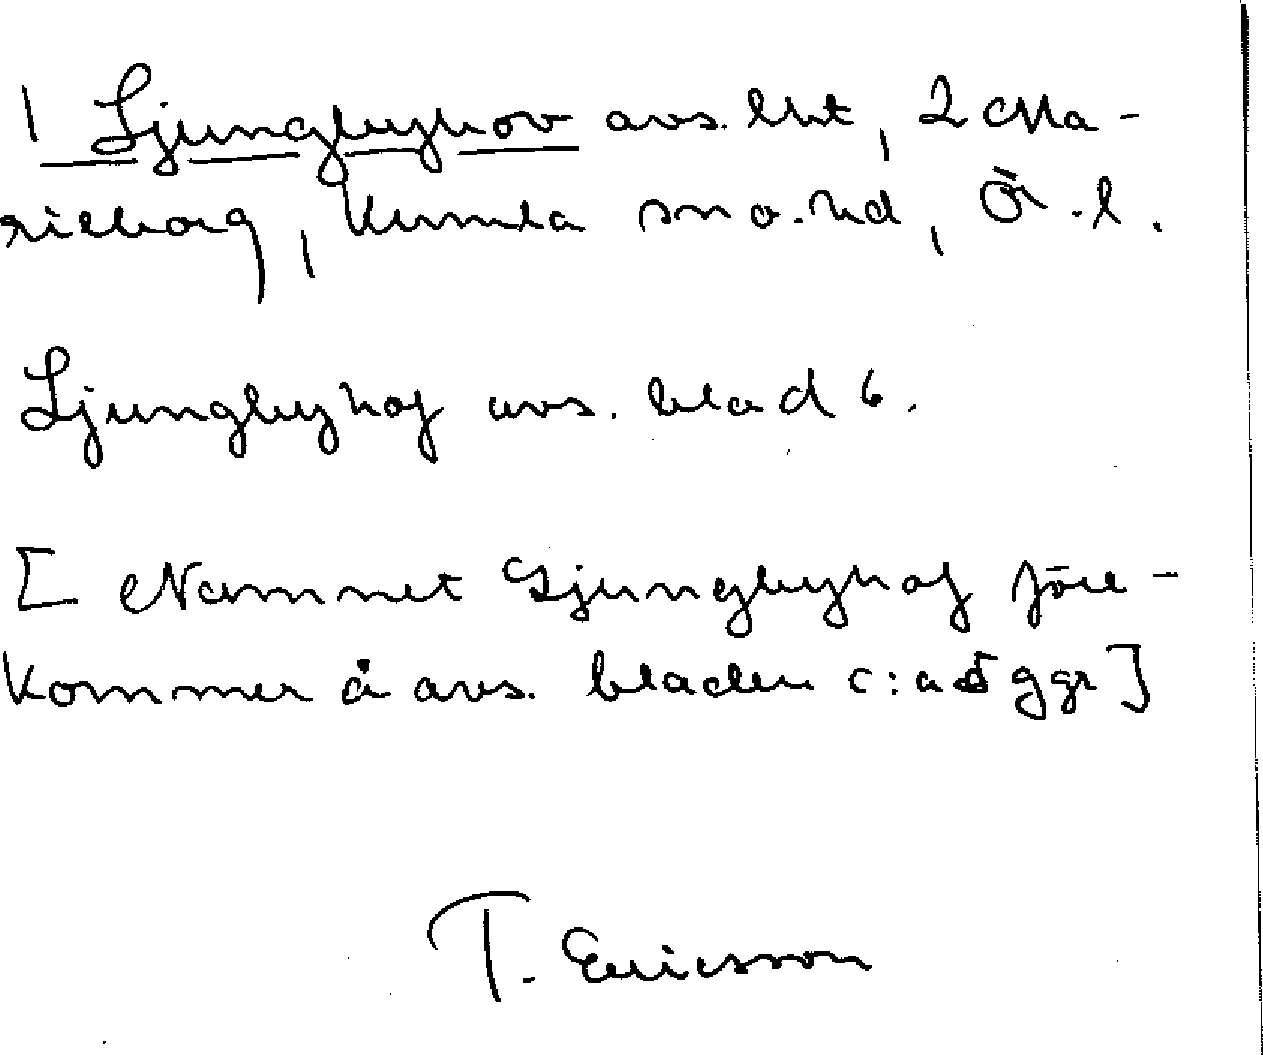 1 Ljungbyhov avs. lht, 2 Ma-
rieborg, Kumla sn o. hd, Ö. l.
Ljungbyhof avs. blad 6.
[Namnet Ljungbyhof före-
kommer å avs. bladen c:a 5 ggr]
T. Ericsson